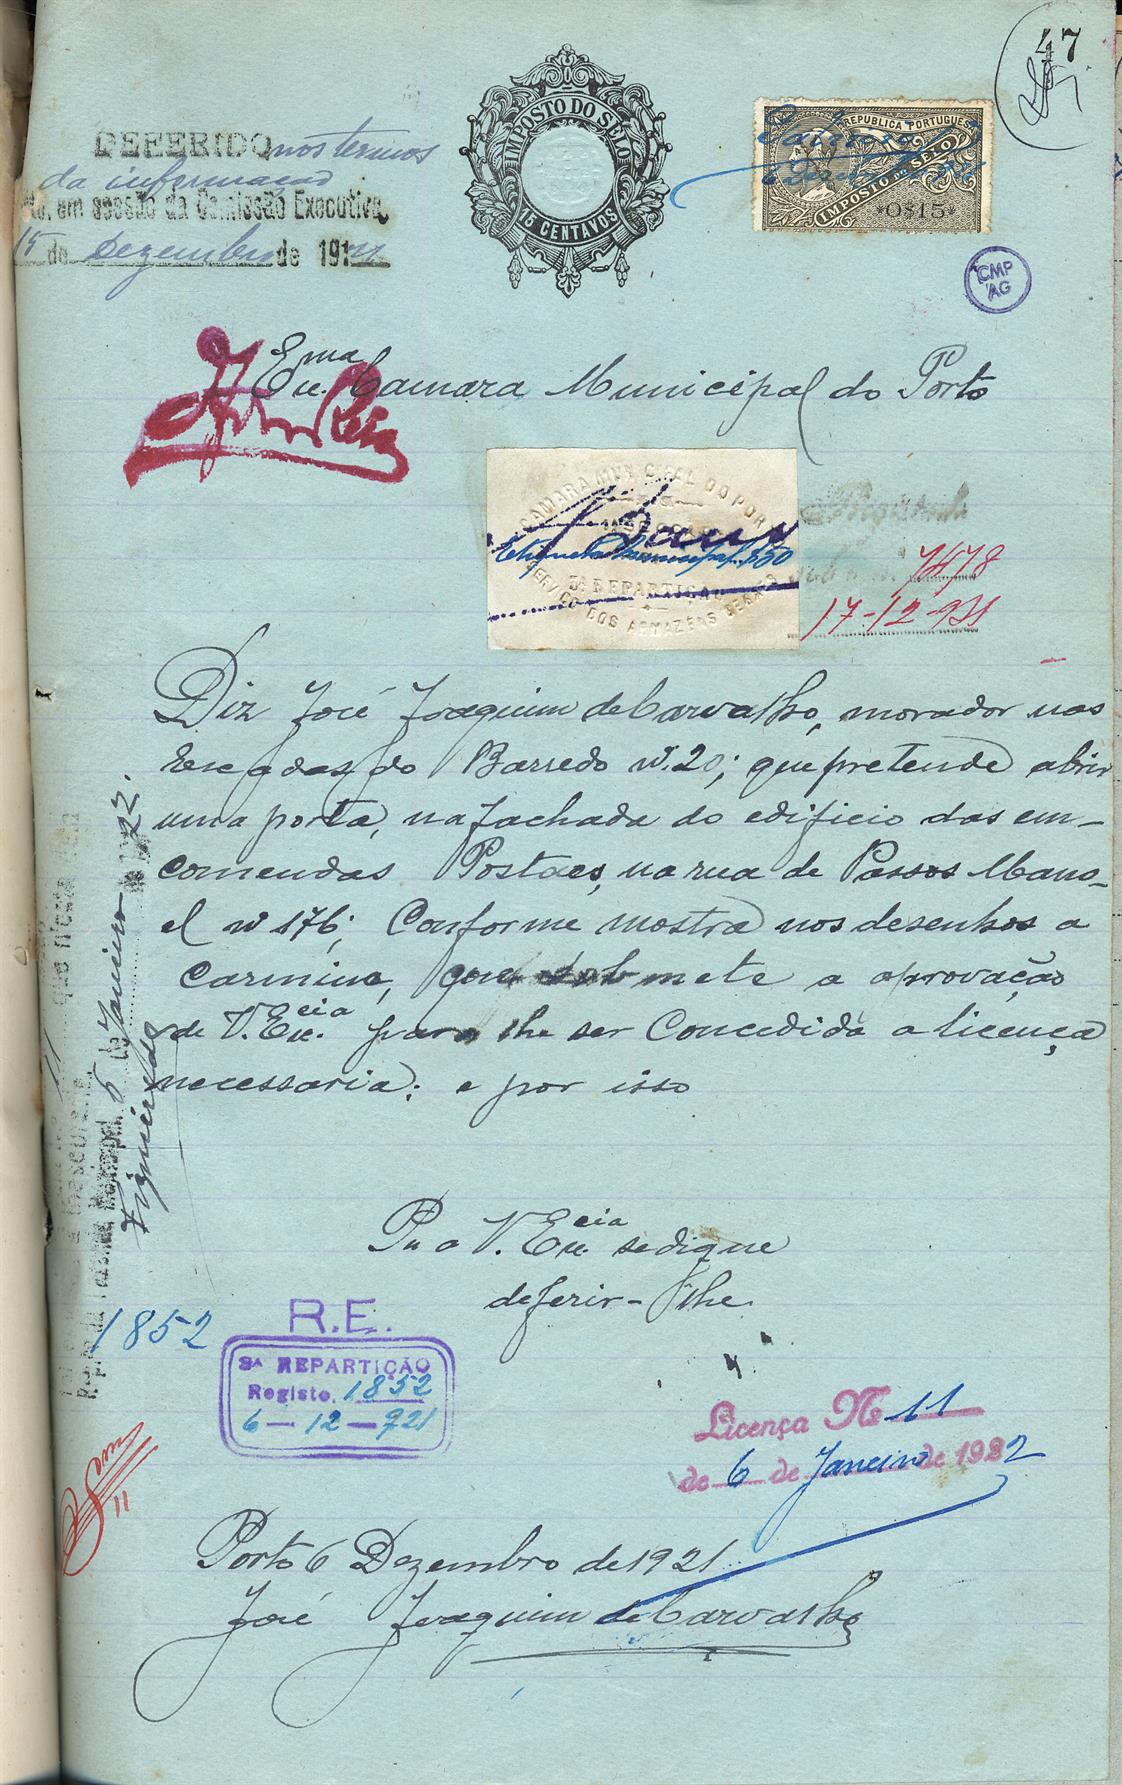 47
DEFERIDO nos termos
da informação
em sessão da Comissão Executiva,
15 de Dezembro de 1921
IMPOSTO DO SELO
15 CENTAVOS
REPUBLICA PORTUGUESA
IMPOSTO DO SELO
0$15
CMP
AG
Exma Camara Municipal do Porto
CAMARA MUNICIPAL DO PORTO
Etiqueta Municipal $50
3ª REPARTIÇÃO
SERVIÇO DOS ARMAZENS GERAES
Registado
sob o n.º 7478
17-12-921
Diz José Joaquim de Carvalho, morador nas
Escadas do Barredo nº 20; que pretende abrir
uma porta, na fachada do edificio das em-
comendas Postaes, na rua de Passos Mano-
el nº 176; Conforme mostra nos desenhos a
Carmino, que submete a aprovação
de V. Excia para lhe ser Concedida a licença
necessaria; e por isso
P. a V. Excia se digne
deferir-lhe
11 que n'esta
Municipal, 6 de Janeiro de 1922.
Figueiredo
1852
R.E.
3ª REPARTIÇÃO
Registo 1852
6-12-921
Licença Nº 11
de 6 de Janeiro de 1922
11
Porto 6 Dezembro de 1921
José Joaquim de Carvalho